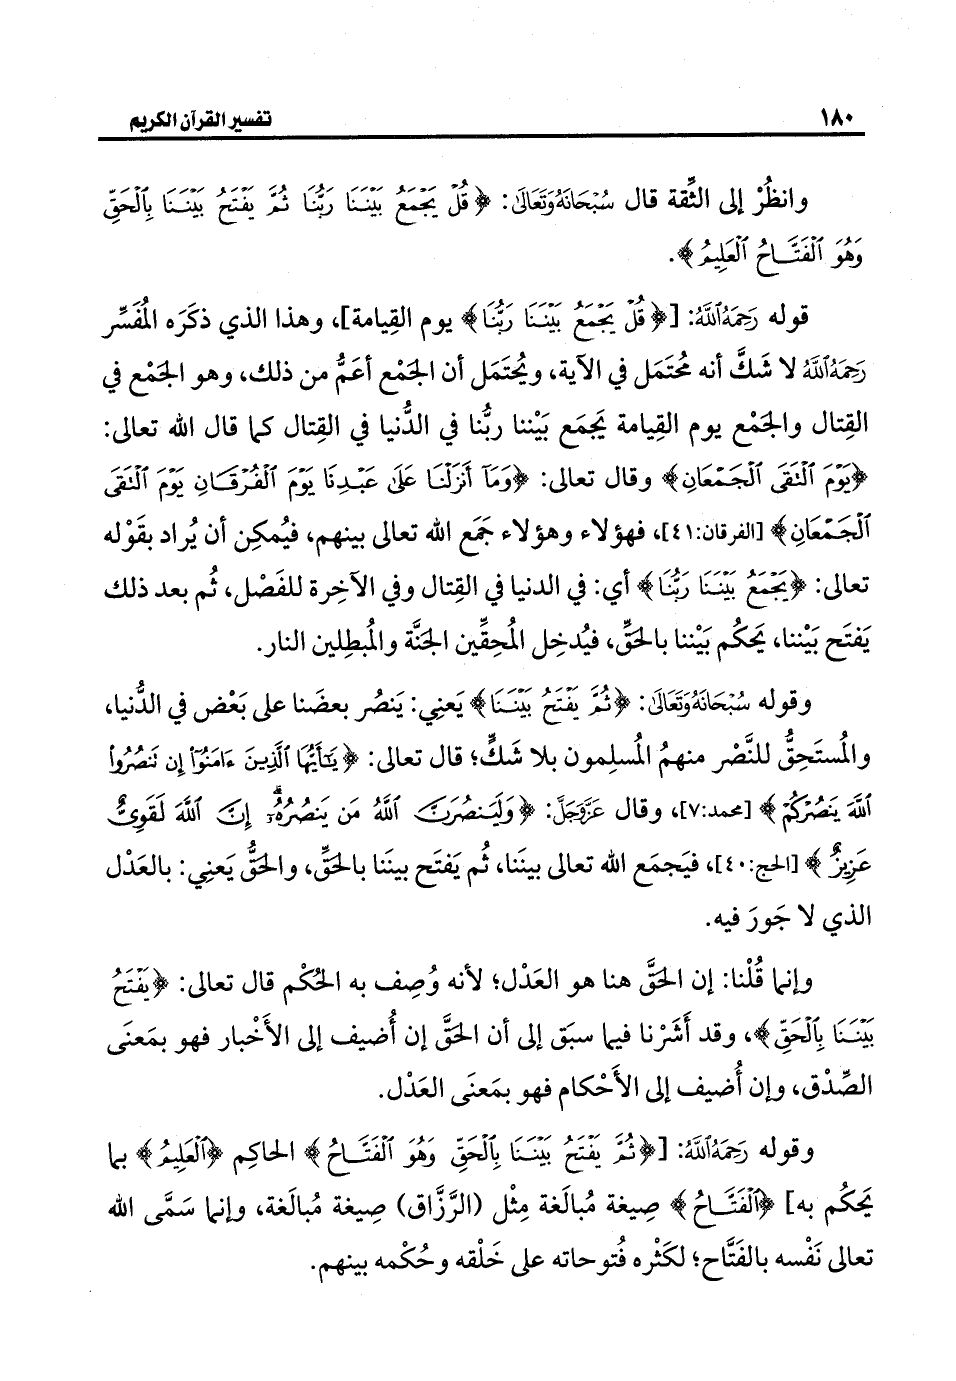 ١٨٠ تفسير القرآن الكريم
وانظُرْ إلى الثِّقة قال سُبْحَانَهُ وَتَعَالَى: ﴿قُلْ يَجْمَعُ بَيْنَنَا رَبُّنَا ثُمَّ يَفْتَحُ بَيْنَنَا بِالْحَقِّ
وَهُوَ الْفَتَّاحُ الْعَلِيمُ﴾.
قوله رَحِمَهُ اللَّهُ: [﴿قُلْ يَجْمَعُ بَيْنَنَا رَبُّنَا﴾ يوم القِيامة]، وهذا الذي ذكَرَه المُفَسِّر
رَحِمَهُ اللَّهُ لا شَكَّ أنه مُحتَمَل في الآية، ويُحتَمَل أن الجَمْع أعَمُّ من ذلك، وهو الجَمْع في
القِتال والجَمْع يوم القِيامة يَجمَع بَيْننا ربُّنا في الدُّنيا في القِتال كما قال الله تعالى:
﴿يَوْمَ الْتَقَى الْجَمْعَانِ﴾ وقال تعالى: ﴿وَمَا أَنزَلْنَا عَلَىٰ عَبْدِنَا يَوْمَ الْفُرْقَانِ يَوْمَ الْتَقَى
الْجَمْعَانِ﴾ [الفرقان:٤١]، فهؤلاء وهؤلاء جَمَع الله تعالى بينهم، فيُمكِن أن يُراد بقَوْله
تعالى: ﴿يَجْمَعُ بَيْنَنَا رَبُّنَا﴾ أي: في الدنيا في القِتال وفي الآخِرة للفَصْل، ثُم بعد ذلك
يَفتَح بَيْننا، يَحكُم بَيْننا بالحَقِّ، فيُدخِل المُحِقِّين الجَنَّة والمُبطِلين النار.
وقوله سُبْحَانَهُ وَتَعَالَى: ﴿ثُمَّ يَفْتَحُ بَيْنَنَا﴾ يَعنِي: يَنصُر بعضَنا على بَعْض في الدُّنيا،
والمُستَحِقُّ للنَّصْر منهمُ المُسلِمون بلا شَكٍّ؛ قال تعالى: ﴿يَا أَيُّهَا الَّذِينَ ءَامَنُوا إِن تَنصُرُوا
اللَّهَ يَنصُرْكُمْ﴾ [محمد:٧]، وقال عَزَّوَجَلَّ: ﴿وَلَيَنصُرَنَّ اللَّهُ مَن يَنصُرُهُ إِنَّ اللَّهَ لَقَوِيٌّ
عَزِيزٌ﴾ [الحج:٤٠]، فيَجمَع الله تعالى بينَنا، ثُم يَفتَح بينَنا بالحَقِّ، والحَقُّ يَعنِي: بالعَدْل
الذي لا جَورَ فيه.
وإنما قُلْنا: إن الحَقَّ هنا هو العَدْل؛ لأنه وُصِف به الحُكْم قال تعالى: ﴿يَفْتَحُ
بَيْنَنَا بِالْحَقِّ﴾، وقد أَشَرْنا فيما سبَق إلى أن الحَقَّ إن أُضيف إلى الأَخْبار فهو بمَعنَى
الصِّدْق، وإن أُضيف إلى الأَحْكام فهو بمَعنَى العَدْل.
وقوله رَحِمَهُ اللَّهُ: [﴿ثُمَّ يَفْتَحُ بَيْنَنَا بِالْحَقِّ وَهُوَ الْفَتَّاحُ﴾ الحاكِم ﴿الْعَلِيمُ﴾ بما
يَحكُم به] ﴿الْفَتَّاحُ﴾ صِيغة مُبالَغة مِثْل (الرَّزَّاق) صِيغة مُبالَغة، وإنما سَمَّى الله
تعالى نَفْسه بالفَتَّاح؛ لكَثْره فُتوحاته على خَلْقه وحُكْمه بينهم.